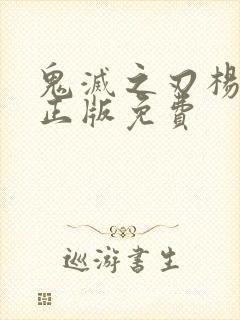 鬼滅之刃楊
正版免費
巡游書生